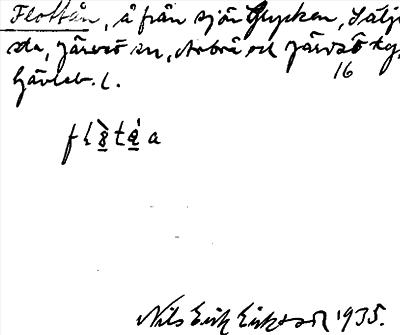 Flottån, å från sjön Glypken, Sälje-
sta, Järvsö sn, Arbrå och Järvsö tg,
16
Gävleb. l.
Nils Erik Eriksson 1935.